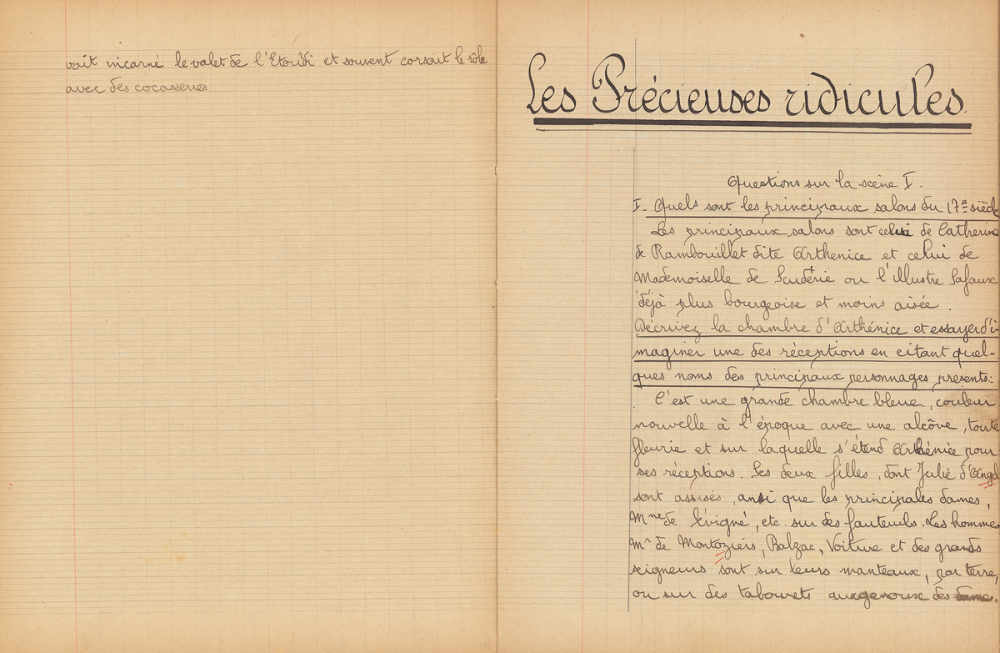 vait incarné le valet de l'Etourdi et souvent corsait le rôle
avec des cocasseries
Les Précieuses ridicules
Questions sur la scène I.
I. Quels sont les principaux salons du 17e siècl
Les principaux salons sont celui de Catherine
de Rambouillet dite Arthenice et celui de
Mademoiselle de Scudérie ou l'illustre Safaux
déjà plus bourgeoise et moins aisée.
Décrivez la chambre d'Arthénice et essayer d'i
maginer une des réceptions en citant quel-
ques noms des principaux personnages présents:
C'est une grande chambre bleue, couleur
nouvelle à l'époque avec une alcôve, toute
fleurie et sur laquelle s'étend Arthénice pour
ses réceptions. Ses deux filles, dont Julie d'Angl
sont assises, ansi que les principales dames,
Mme de Sévigné, etc. sur des fauteuils. Les hommes
Mr de Montoziers, Balzac, Voiture et des grands
seigneurs sont sur leurs manteaux, par terre,
ou sur des tabourets aux genoux des dames.